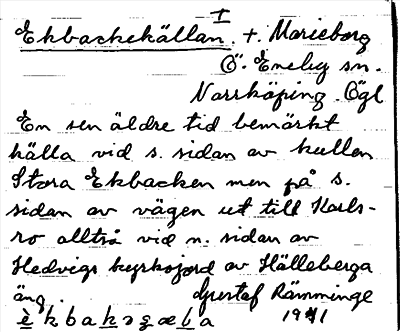 Ekbackekällan. t. Marieborg
Ö. Eneby sn.
Norrköping. Ögl
En sen äldre tid bemärkt
källa vid s. sidan av kullen
Stora Ekbacken men på s.
sidan av vägen ut till Karls-
ro alltså vid n. sidan av
Hedvigs kyrkojord av Hälleberga
äng. Gustaf Rämminge
1941